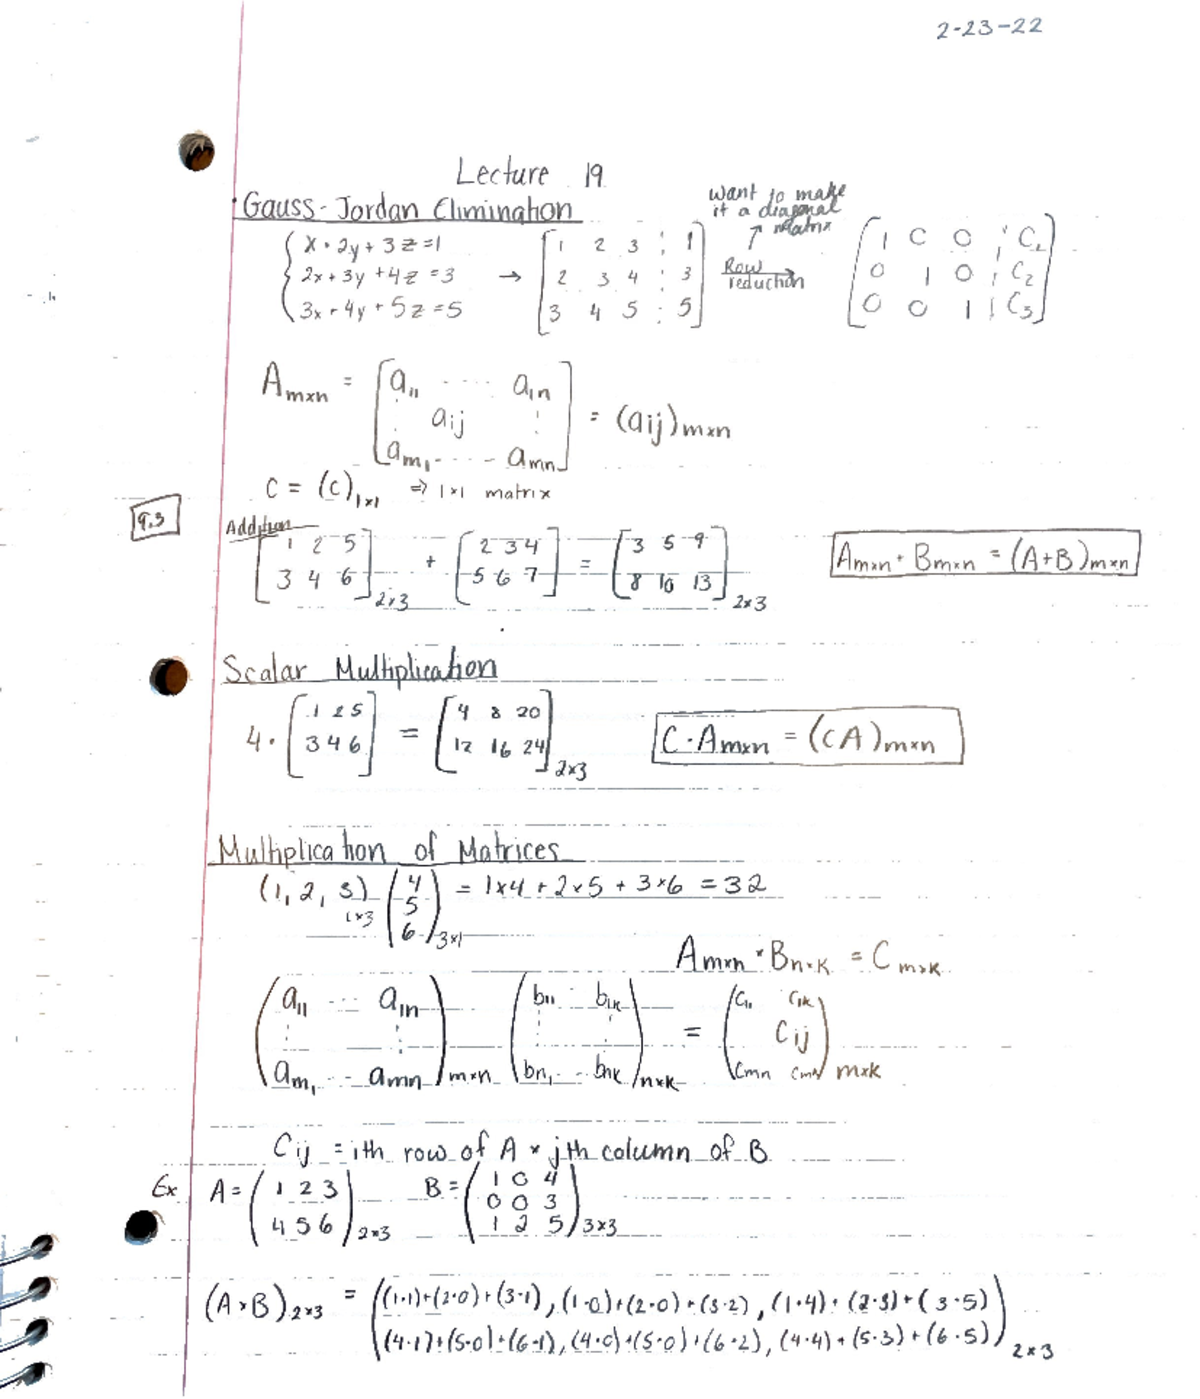 2-23-22
Lecture 19
Gauss-Jordan Elimination
want to make
it a diagonal
↑ matrix
{ x + 2y + 3z = 1
2x + 3y + 4z = 3
3x + 4y + 5z = 5
→ [ 1 2 3 : 1
2 3 4 : 3
3 4 5 : 5 ]
Row
reduction →
[ 1 0 0 ¦ C1
0 1 0 ¦ C2
0 0 1 ¦ C3 ]
Amxn = [ a11 ---- a1n
: aij :
am1 ---- amn ] = (aij)mxn
C = (c)1x1 ⇒ 1x1 matrix
9.3
Addition
[ 1 2 5
3 4 6 ]2x3 + [ 2 3 4
5 6 7 ] = [ 3 5 9
8 10 13 ]2x3
Amxn + Bmxn = (A+B)mxn
Scalar Multiplication
4 · [ 1 2 5
3 4 6 ] = [ 4 8 20
12 16 24 ]2x3
C · Amxn = (cA)mxn
Multiplication of Matrices
(1, 2, 3)1x3 ( 4
5
6 )3x1 = 1x4 + 2x5 + 3x6 = 32
Amxn × Bnxk = Cmxk
( a11 --- a1n
: :
am1 -- amn )mxn ( b11 -- b1k
: :
bn1 -- bnk )nxk = ( c11 c1k
Cij
cmn cmk )mxk
Cij = ith row of A x jth column of B
Ex A = ( 1 2 3
4 5 6 )2x3 B = ( 1 0 4
0 0 3
1 2 5 )3x3
(A×B)2x3 = ( (1·1)+(2·0)+(3·1), (1·0)+(2·0)+(3·2), (1·4)+(2·3)+(3·5)
(4·1)+(5·0)+(6·1), (4·0)+(5·0)+(6·2), (4·4)+(5·3)+(6·5) )2x3